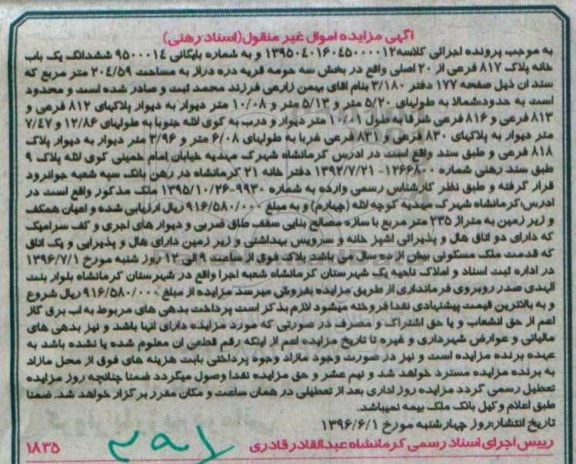 آگهی مزایده اموال غیر منقول(اسناد رهنی)
به موجب پرونده اجرائی کلاسه ۱۳۹۵۰۴۰۱۶۰۴۵۰۰۰۰۱۲ و به شماره بایگانی ۹۵۰۰۰۱۴ ششدانگ یک باب
خانه پلاک ۸۱۷ فرعی از ۲۰ اصلی واقع در بخش سه حومه قریه دره دراز به مساحت ۲۰۴/۵۹ متر مربع که
سند آن ذیل صفحه ۱۷۷ دفتر ۳/۱۸۰ بنام آقای بهمن زارعی فرزند محمد ثبت و صادر شده است و محدود
است به حدود:شمالا به طولهای ۵/۲۰ متر و ۵/۱۳ متر و ۱۰/۰۸ متر دیوار به دیوار پلاکهای ۸۱۲ فرعی و
۸۱۳ فرعی و ۸۱۶ فرعی شرقا به طول ۱۰/۰۱ متر دیوار و درب به کوی لاله جنوبا به طولهای ۱۲/۸۶ و ۷/۴۷
متر دیوار به پلاکهای ۸۳۰ فرعی و ۸۳۱ فرعی غربا به طولهای ۶/۰۸ متر و ۳/۹۶ متر دیوار به دیوار پلاک
۸۱۸ فرعی و طبق سند واقع است در آدرس کرمانشاه شهرک مهدیه خیابان امام خمینی کوی لاله پلاک ۹
طبق سند رهنی شماره ۱۲۶۶۸۰۰-۱۳۹۲/۷/۲۱ دفتر خانه ۲۱ کرمانشاه در رهن بانک سپه شعبه جوانرود
قرار گرفته و طبق نظر کارشناس رسمی وارده به شماره ۹۹۳۰-۱۳۹۵/۱۰/۲۶ ملک مذکور واقع است در
آدرس:کرمانشاه شهرک مهدیه کوچه لاله (چهارم) و به مبلغ ۹۱۶/۵۸۰/۰۰۰ ریال ارزیابی شده و اعیان همکف
و زیر زمین به متراژ ۲۳۵ متر مربع با سازه مصالح بنایی سقف طاق ضربی و دیوار های آجری و کف سرامیک
که دارای دو اتاق هال و پذیرائی آشپز خانه و سرویس بهداشتی و زیر زمین دارای هال و پذیرایی و یک اتاق
که قدمت ملک مسکونی بیش از ده سال می باشد پلاک فوق از ساعت ۹ الی ۱۲ روز شنبه مورخ ۱۳۹۶/۷/۱
در اداره ثبت اسناد و املاک ناحیه یک شهرستان کرمانشاه شعبه اجرا واقع در شهرستان کرمانشاه بلوار بنت
الهدی صدر روبروی فرمانداری از طریق مزایده بفروش میرسد مزایده از مبلغ ۹۱۶/۵۸۰/۰۰۰ ریال شروع
و به بالاترین قیمت پیشنهادی نقدا فروخته میشود لازم بذکر است پرداخت بدهی های مربوط به آب برق گاز
اعم از حق انشعاب و یا حق اشتراک و مصرف در صورتی که مورد مزایده دارای آنها باشد و نیز بدهی های
مالیاتی و عوارض شهرداری و غیره تا تاریخ مزایده اعم از اینکه رقم قطعی آن معلوم شده یا نشده باشد به
عهده برنده مزایده است و نیز در صورت وجود مازاد وجوه پرداختی بابت هزینه های فوق از محل مازاد
به برنده مزایده مسترد خواهد شد و نیم عشر و حق مزایده نقدا وصول میگردد ضمنا چنانچه روز مزایده
تعطیل رسمی گردد مزایده روز اداری بعد از تعطیلی در همان ساعت و مکان مقرر برگزار خواهد شد. ضمنا
طبق اعلام وکیل بانک ملک بیمه نمیباشد.
تاریخ انتشار:روز چهارشنبه مورخ ۱۳۹۶/۶/۱
رییس اجرای اسناد رسمی کرمانشاه عبدالقادر قادری ۱۸۳۵